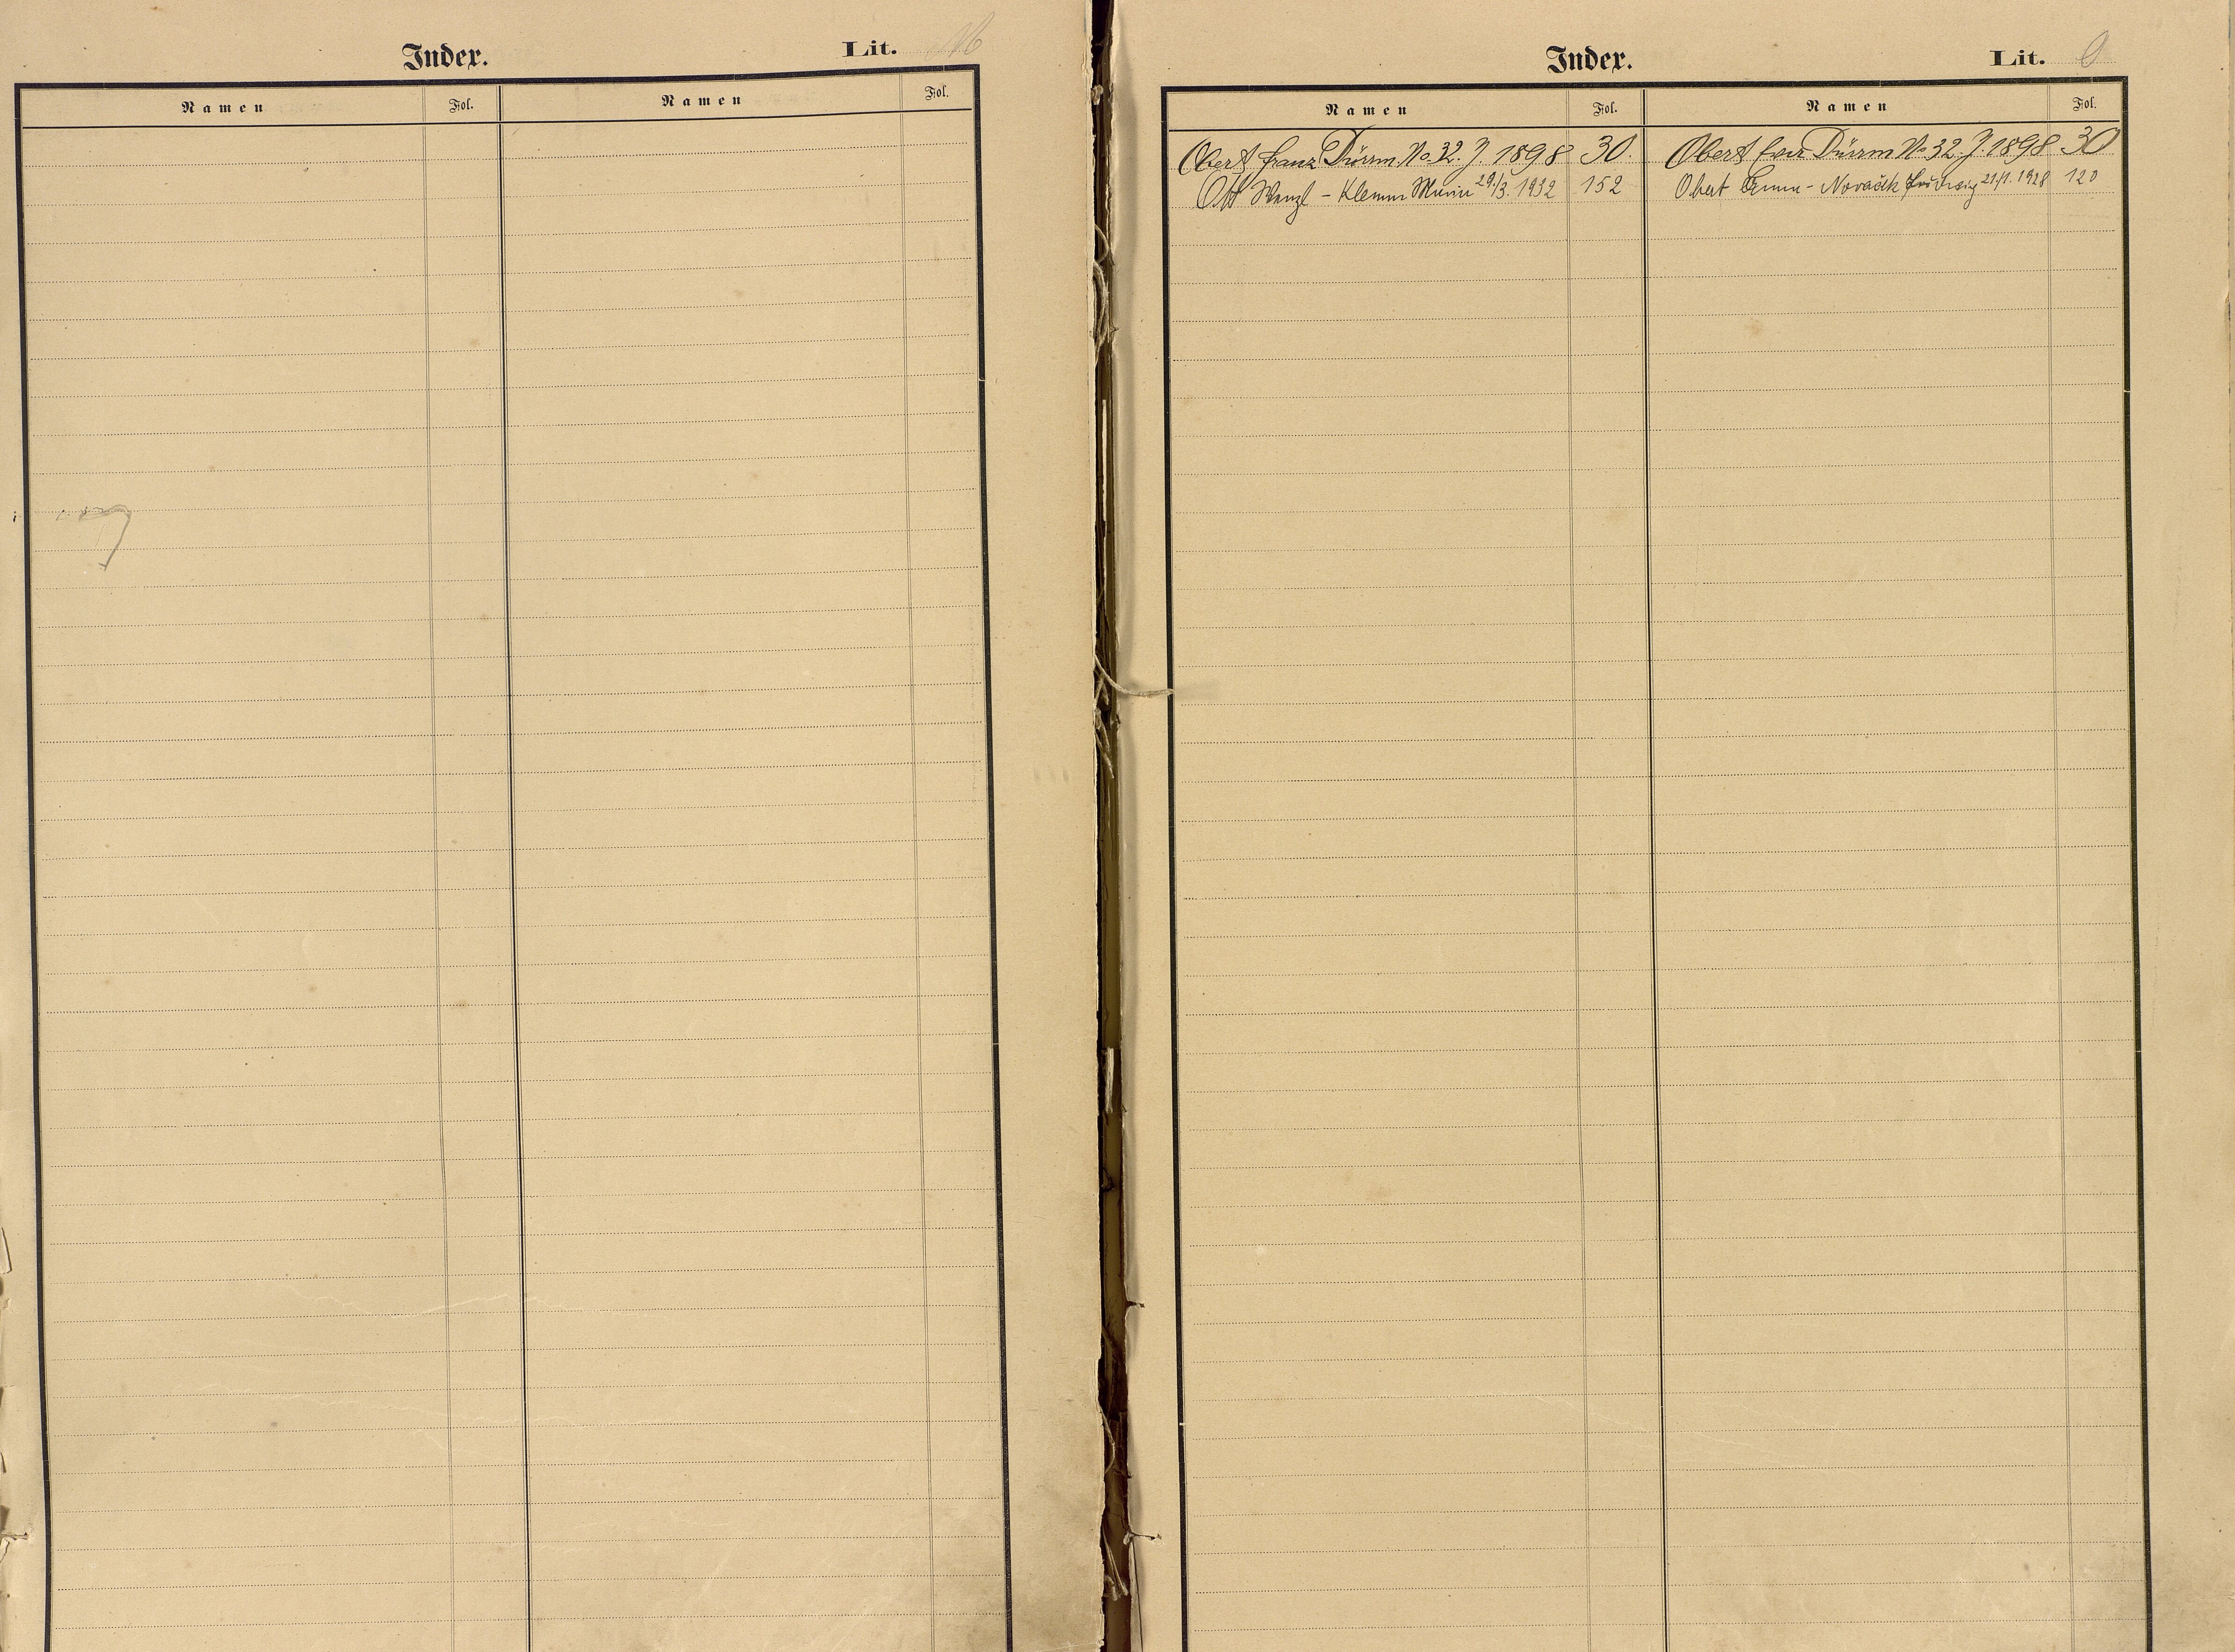 Index.
Lit.
Namen Fol. Namen Fol.
Index.
Lit. O
Namen Fol. Namen Fol.
Obert Franz Dürrm. No 32. J. 1898 30.
Ott Wenzl - Klemm Marie 29./3. 1932 152
Obert Dürrm No 32. J. 1898 30
Obert - Novaček 21/1. 1928 120